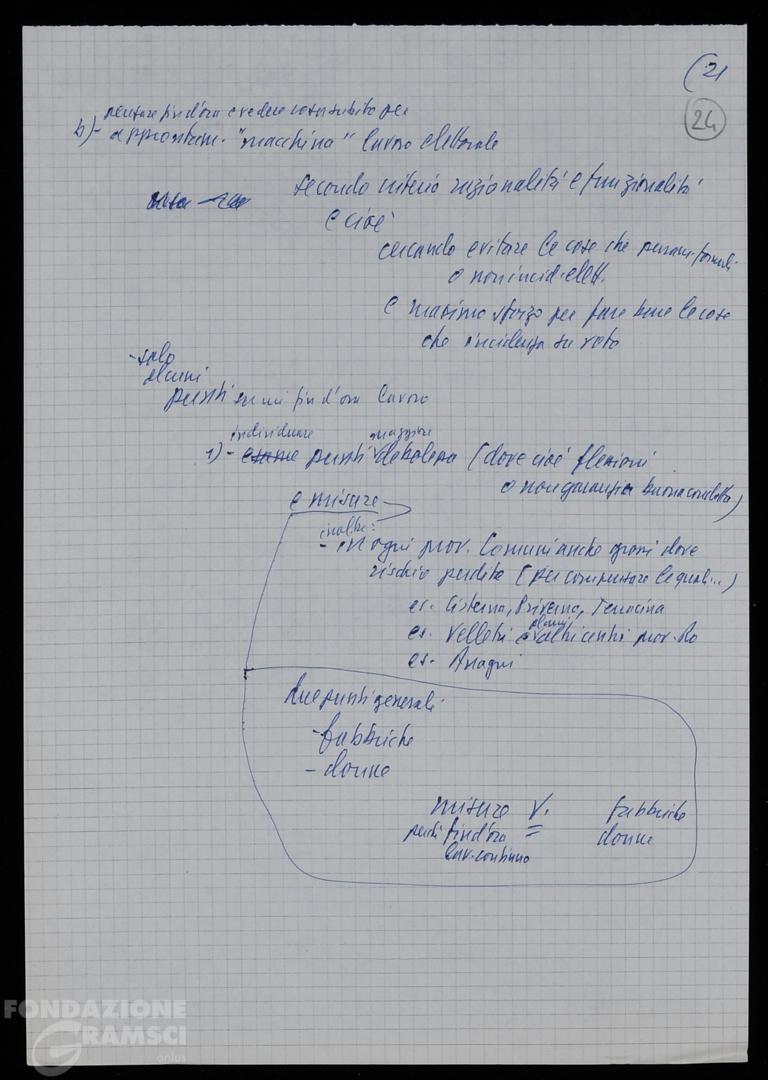 (21
24
pensare fin d'ora e vedere cosa subito per
b) - approntam. "macchina" lavoro elettorale
secondo criterio razionalità e funzionalità
e cioè
cercando evitare le cose che
o non incid. elett.
e massimo sforzo per fare bene le cose
che incidenza su voto
- solo
alcuni
punti su cui fin d'ora lavoro
individuare maggiore
1) - esame punti debolezza (dove cioè flessioni
o non garanzia buona condotta)
e misure
inoltre:
- in ogni prov. Comuni anche grossi dove
rischio perdite (per compensare le quali...)
es. Cisterna, Priverno, Terracina
es. Velletri e alcuni altri centri prov. Ro
es. Anagni
due punti generali
- fabbriche
- donne
misure V. fabbriche
perché fin d'ora = donne
lav. continuo
FONDAZIONE
GRAMSCI
onlus